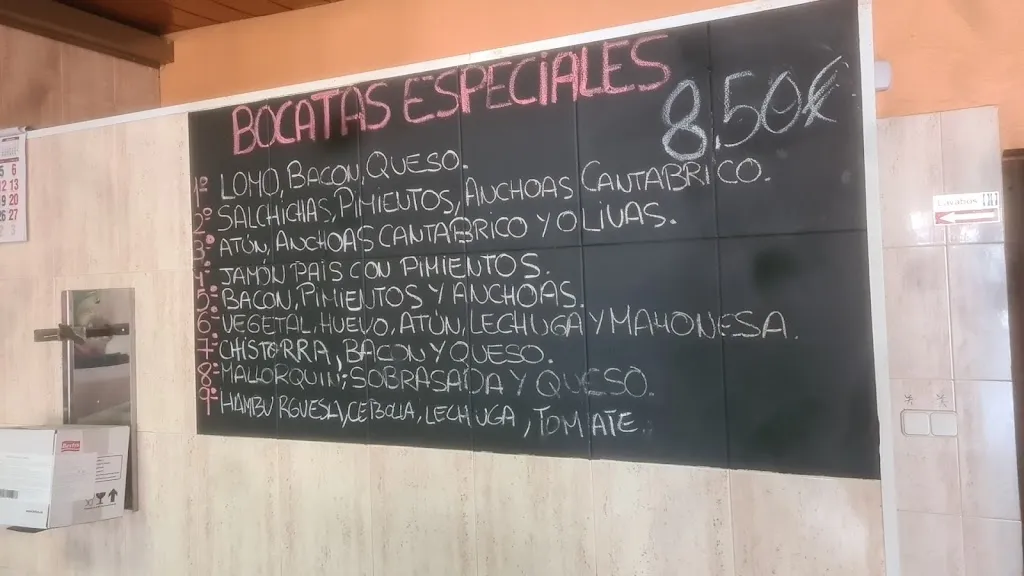 BOCATAS ESPECIALES
8.50€
1º LOMO, BACON, QUESO.
2º SALCHICHAS, PIMIENTOS, ANCHOAS CANTABRICO.
3º ATÚN, ANCHOAS CANTABRICO Y OLIVAS.
4º JAMÓN PAIS CON PIMIENTOS.
5º BACON, PIMIENTOS Y ANCHOAS.
6º VEGETAL, HUEVO, ATÚN, LECHUGA Y MAHONESA.
7º CHISTORRA, BACON Y QUESO.
8º MALLORQUIN, SOBRASADA Y QUESO.
9º HAMBURGUESA, CEBOLLA, LECHUGA, TOMATE.
Lavabos
5 6
12 13
19 20
26 27